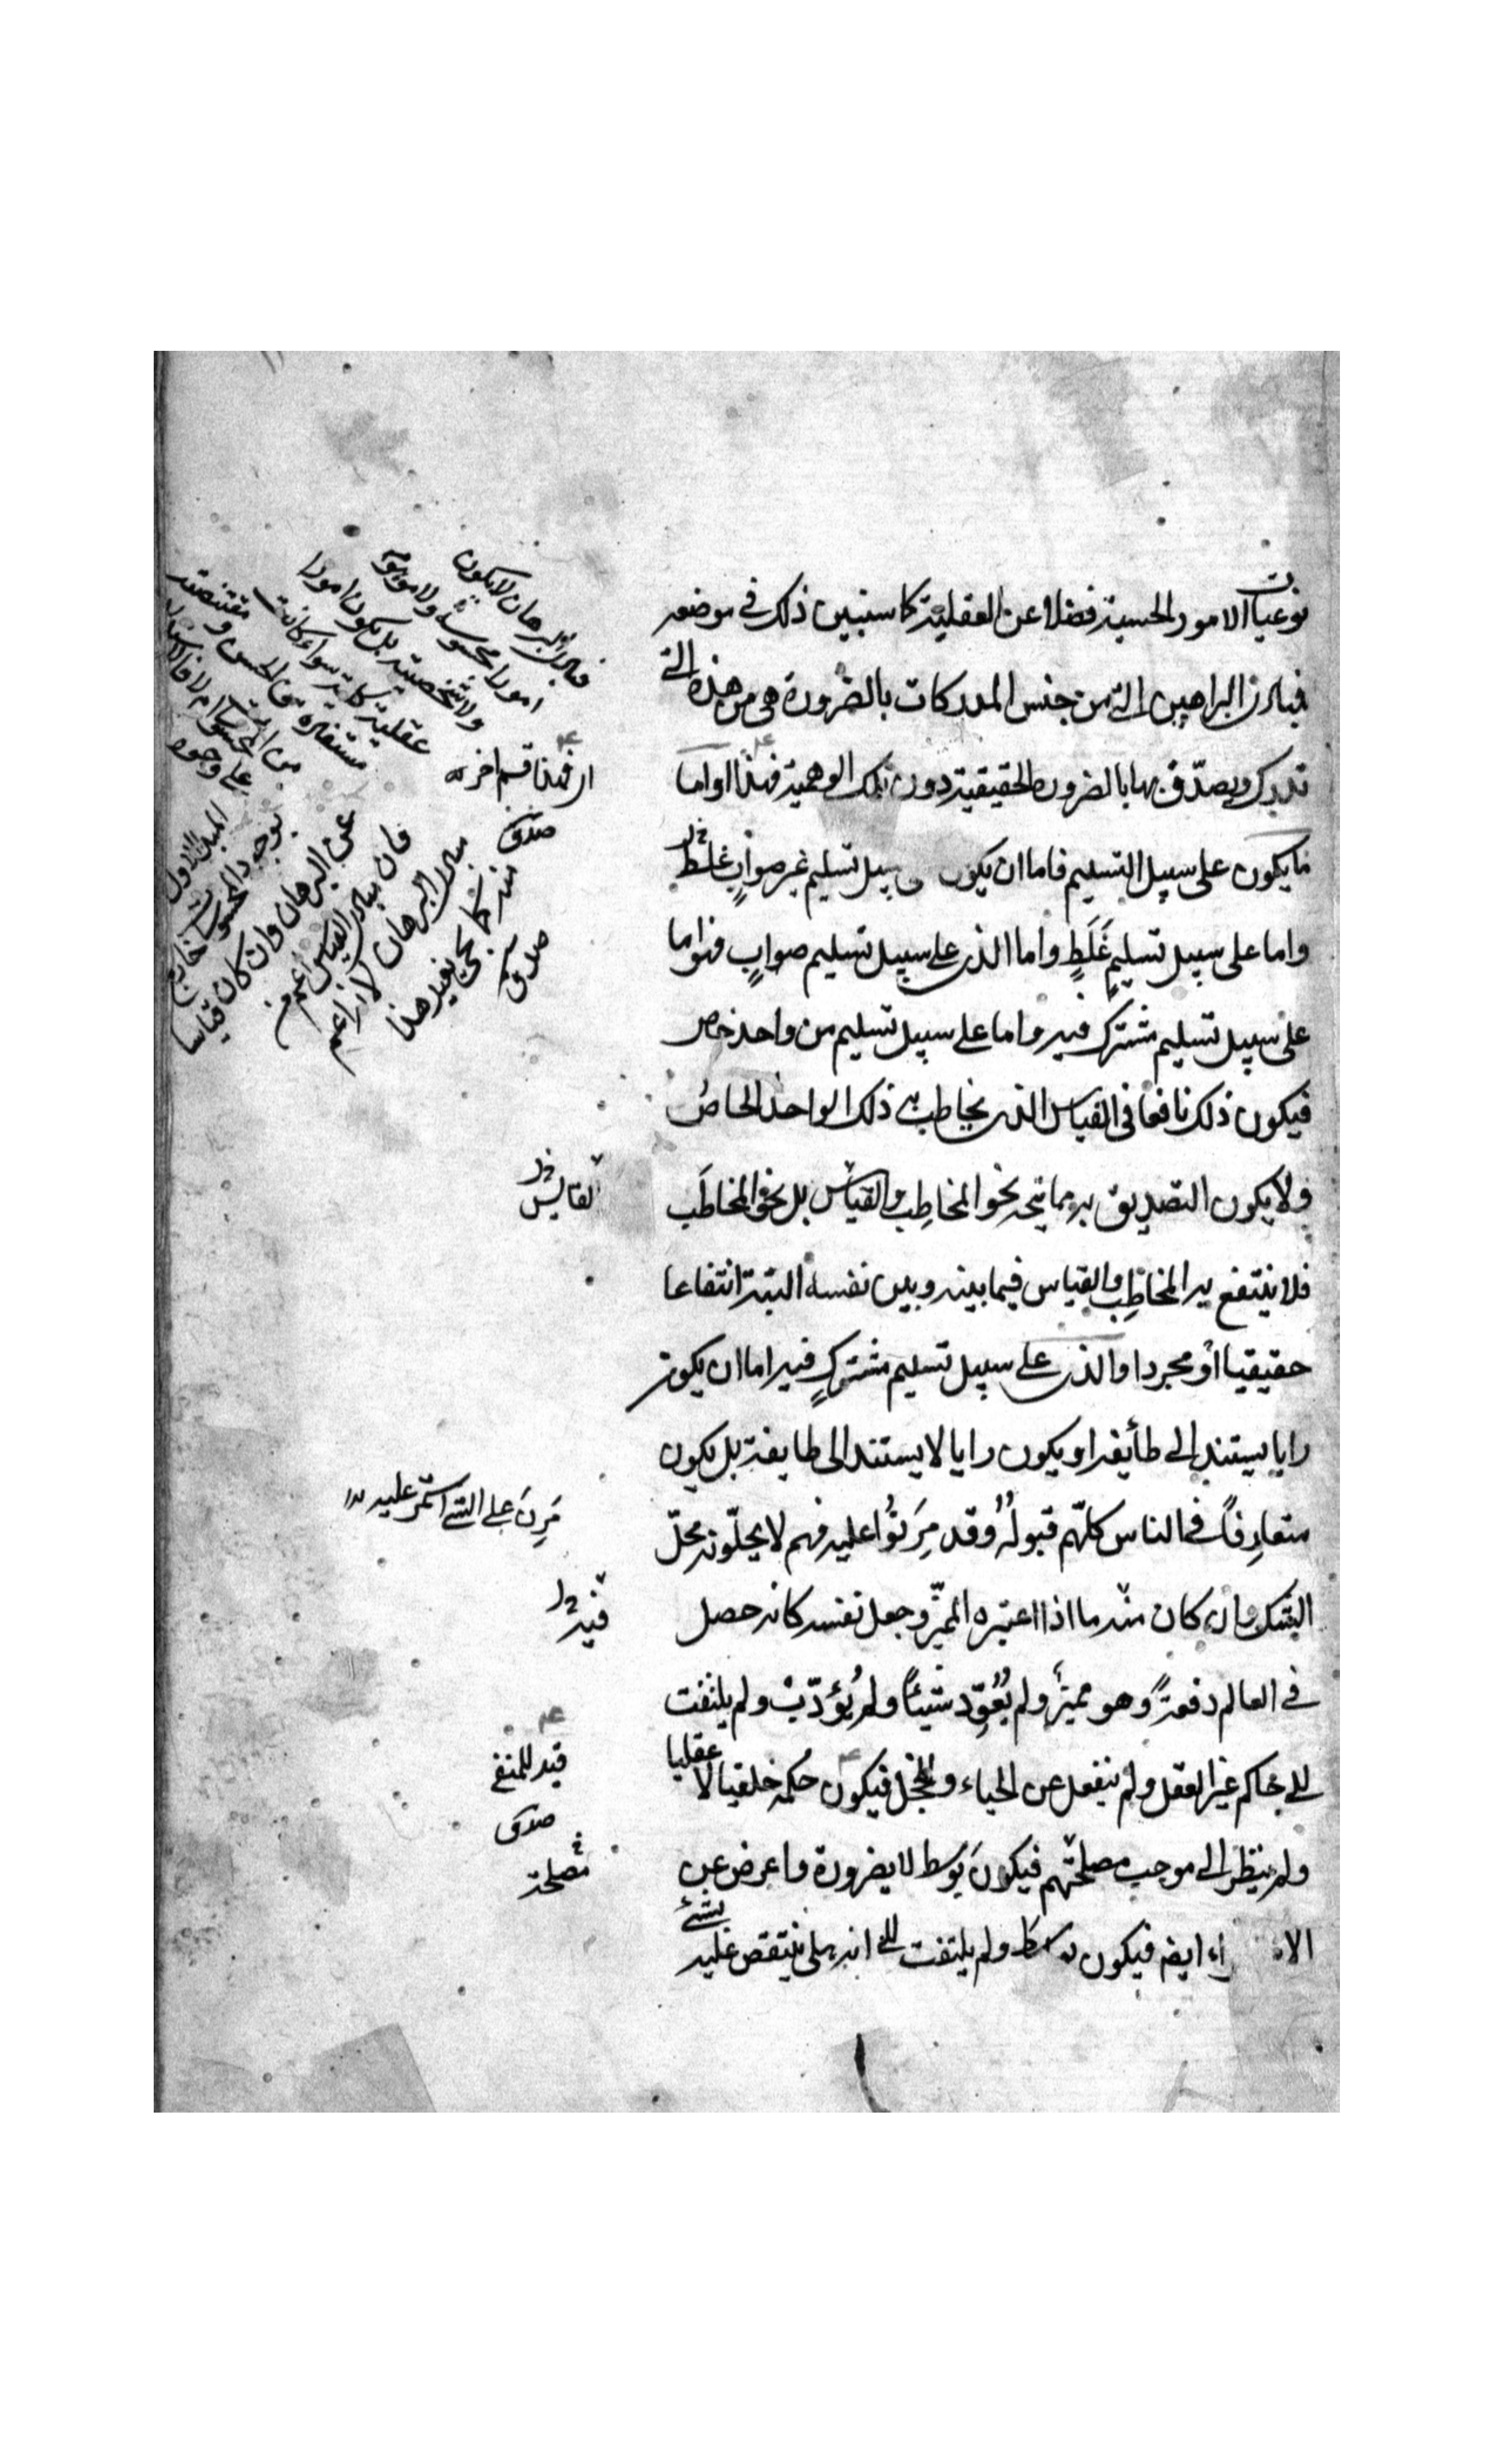 نوعيات الامور الحسية فضلا عن العقلية كما سنبين ذلك في موضعه
فمبادئ البراهين التي من جنس المدركات بالضرورة هي من هذه التي
تدرك ويصدق بها بالضرورة الحقيقية دون تلك الوهمية فهذا واما
ما يكون على سبيل التسليم فاما ان يكون سبيل تسليم غير صواب غلط
واما على سبيل تسليم غَلَطٍ واما الذي على سبيل تسليم صوابٍ فهو اما
على سبيل تسليم مشترك فيه واما على سبيل تسليم من واحد خاص
فيكون ذلك نافعا في القياس الذي يخاطب به ذلك الواحد الخاص
ولا يكون التصديق به مما يتجه نحو المخاطِب والقياس بل نحو المخاطَب
فلا ينتفع به المخاطِب والقياس فيما بينه وبين نفسه البتة انتفاعا
حقيقيا أو مجردا والذي على سبيل تسليم مشتركٍ فيه اما ان يكون
رايا يستند الى طائفة او يكون رايا لا يستند الى طايفة بل يكون
متعارفاً في الناس كلّهم قبولُهُ وقد مَرَنُوا عليه فهم لا يحلّونه محلّ
الشك وان كان منه ما اذا اعتبره المميّز وجعل نفسه كانه حصل
في العالم دفعةً وهو مميز ولم يُعَوَّد شيئاً ولم يُؤدّب ولم يلتفت
الى حاكم غير العقل ولم ينفعل عن الحياء والخجل فيكون حكمه خلقيا لا عقليا
ولم ينظر الى موجب مصلحتهم فيكون بوسط لا بضرورة واعرض عن
الا راء ايضا فيكون ولم يلتفت الى انه هل ينتقض عليه بشئ
فمبادئ البرهان لا يكون
امورا محسوسة ولا موهومة
ولا شخصية بل يكون امورا
عقلية كلية سواء كانت
اى فهذا قسم اخر
صدق
فان مبادئ القياس اعم من
مبادئ البرهان لانه اعم
منه كما يجئ بعيد هذا
صدق
عن البرهان وان كان قياسا
القايس
مَرِنَ على الشئ استمر عليه
فيه
قيد للمنفي
صدق
مصلحة